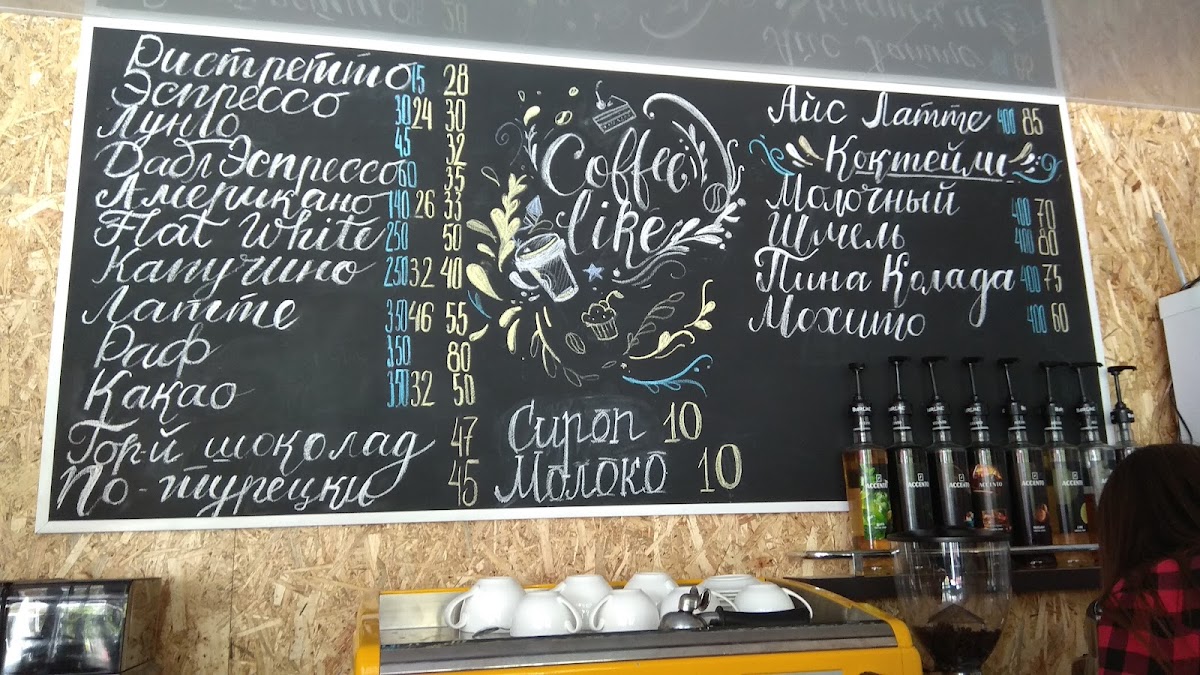 Ристретто 15 28
Эспрессо 30 24 30
Лунго 45 32
Дабл Эспрессо 60 35
Американо 140 26 33
Flat White 250 50
Капучино 250 32 40
Латте 350 46 55
Раф 350 80
Какао 350 32 50
Гор-й шоколад 47
По-турецки 45
Coffee
like
Сироп 10
Молоко 10
Айс Латте 400 85
Коктейли
Молочный 400 70
Шмель 400 80
Пина Колада 400 75
Мохито 400 60
ACCENTO
ACCENTO
ACCENTO